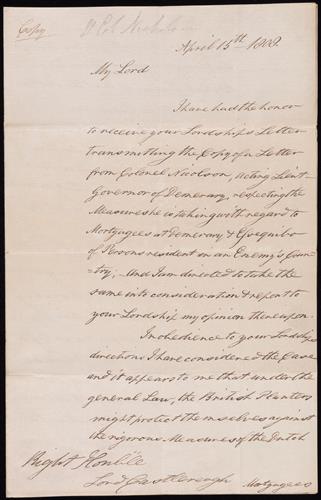 Copy
Lt Col Nicholson
April 15th 1808.
My Lord
I have had the honor
to receive your Lordship's Letter
transmitting the Copy of a Letter
from Colonel Nicolson, acting Lieut-
Governor of Demerary, respecting the
Measures he is taking with regard to
Mortgagees at Demerary & Essequibo
of Persons resident in an Enemy's Coun-
-try; and I am directed to take the
same into consideration & report to
your Lordship my opinion thereupon.
In obedience to your Lordship's
directions I have considered the Case
and it appears to me that under the
general Law, the British Planters
might protect themselves against
the rigorous Measures of the Dutch
Right Honble
Lord Castlereagh
Mortgagees